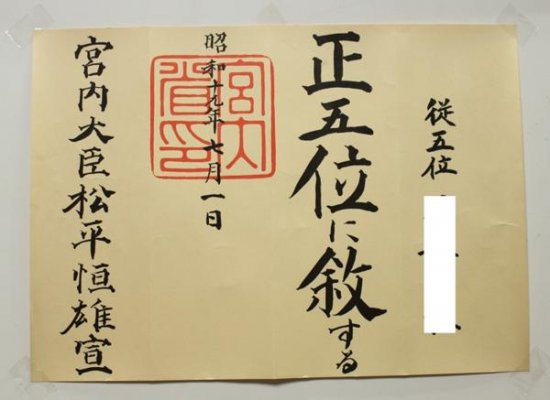 従五位
正五位に敘する
昭和十九年七月一日
宮内省印
宮内大臣松平恒雄宣